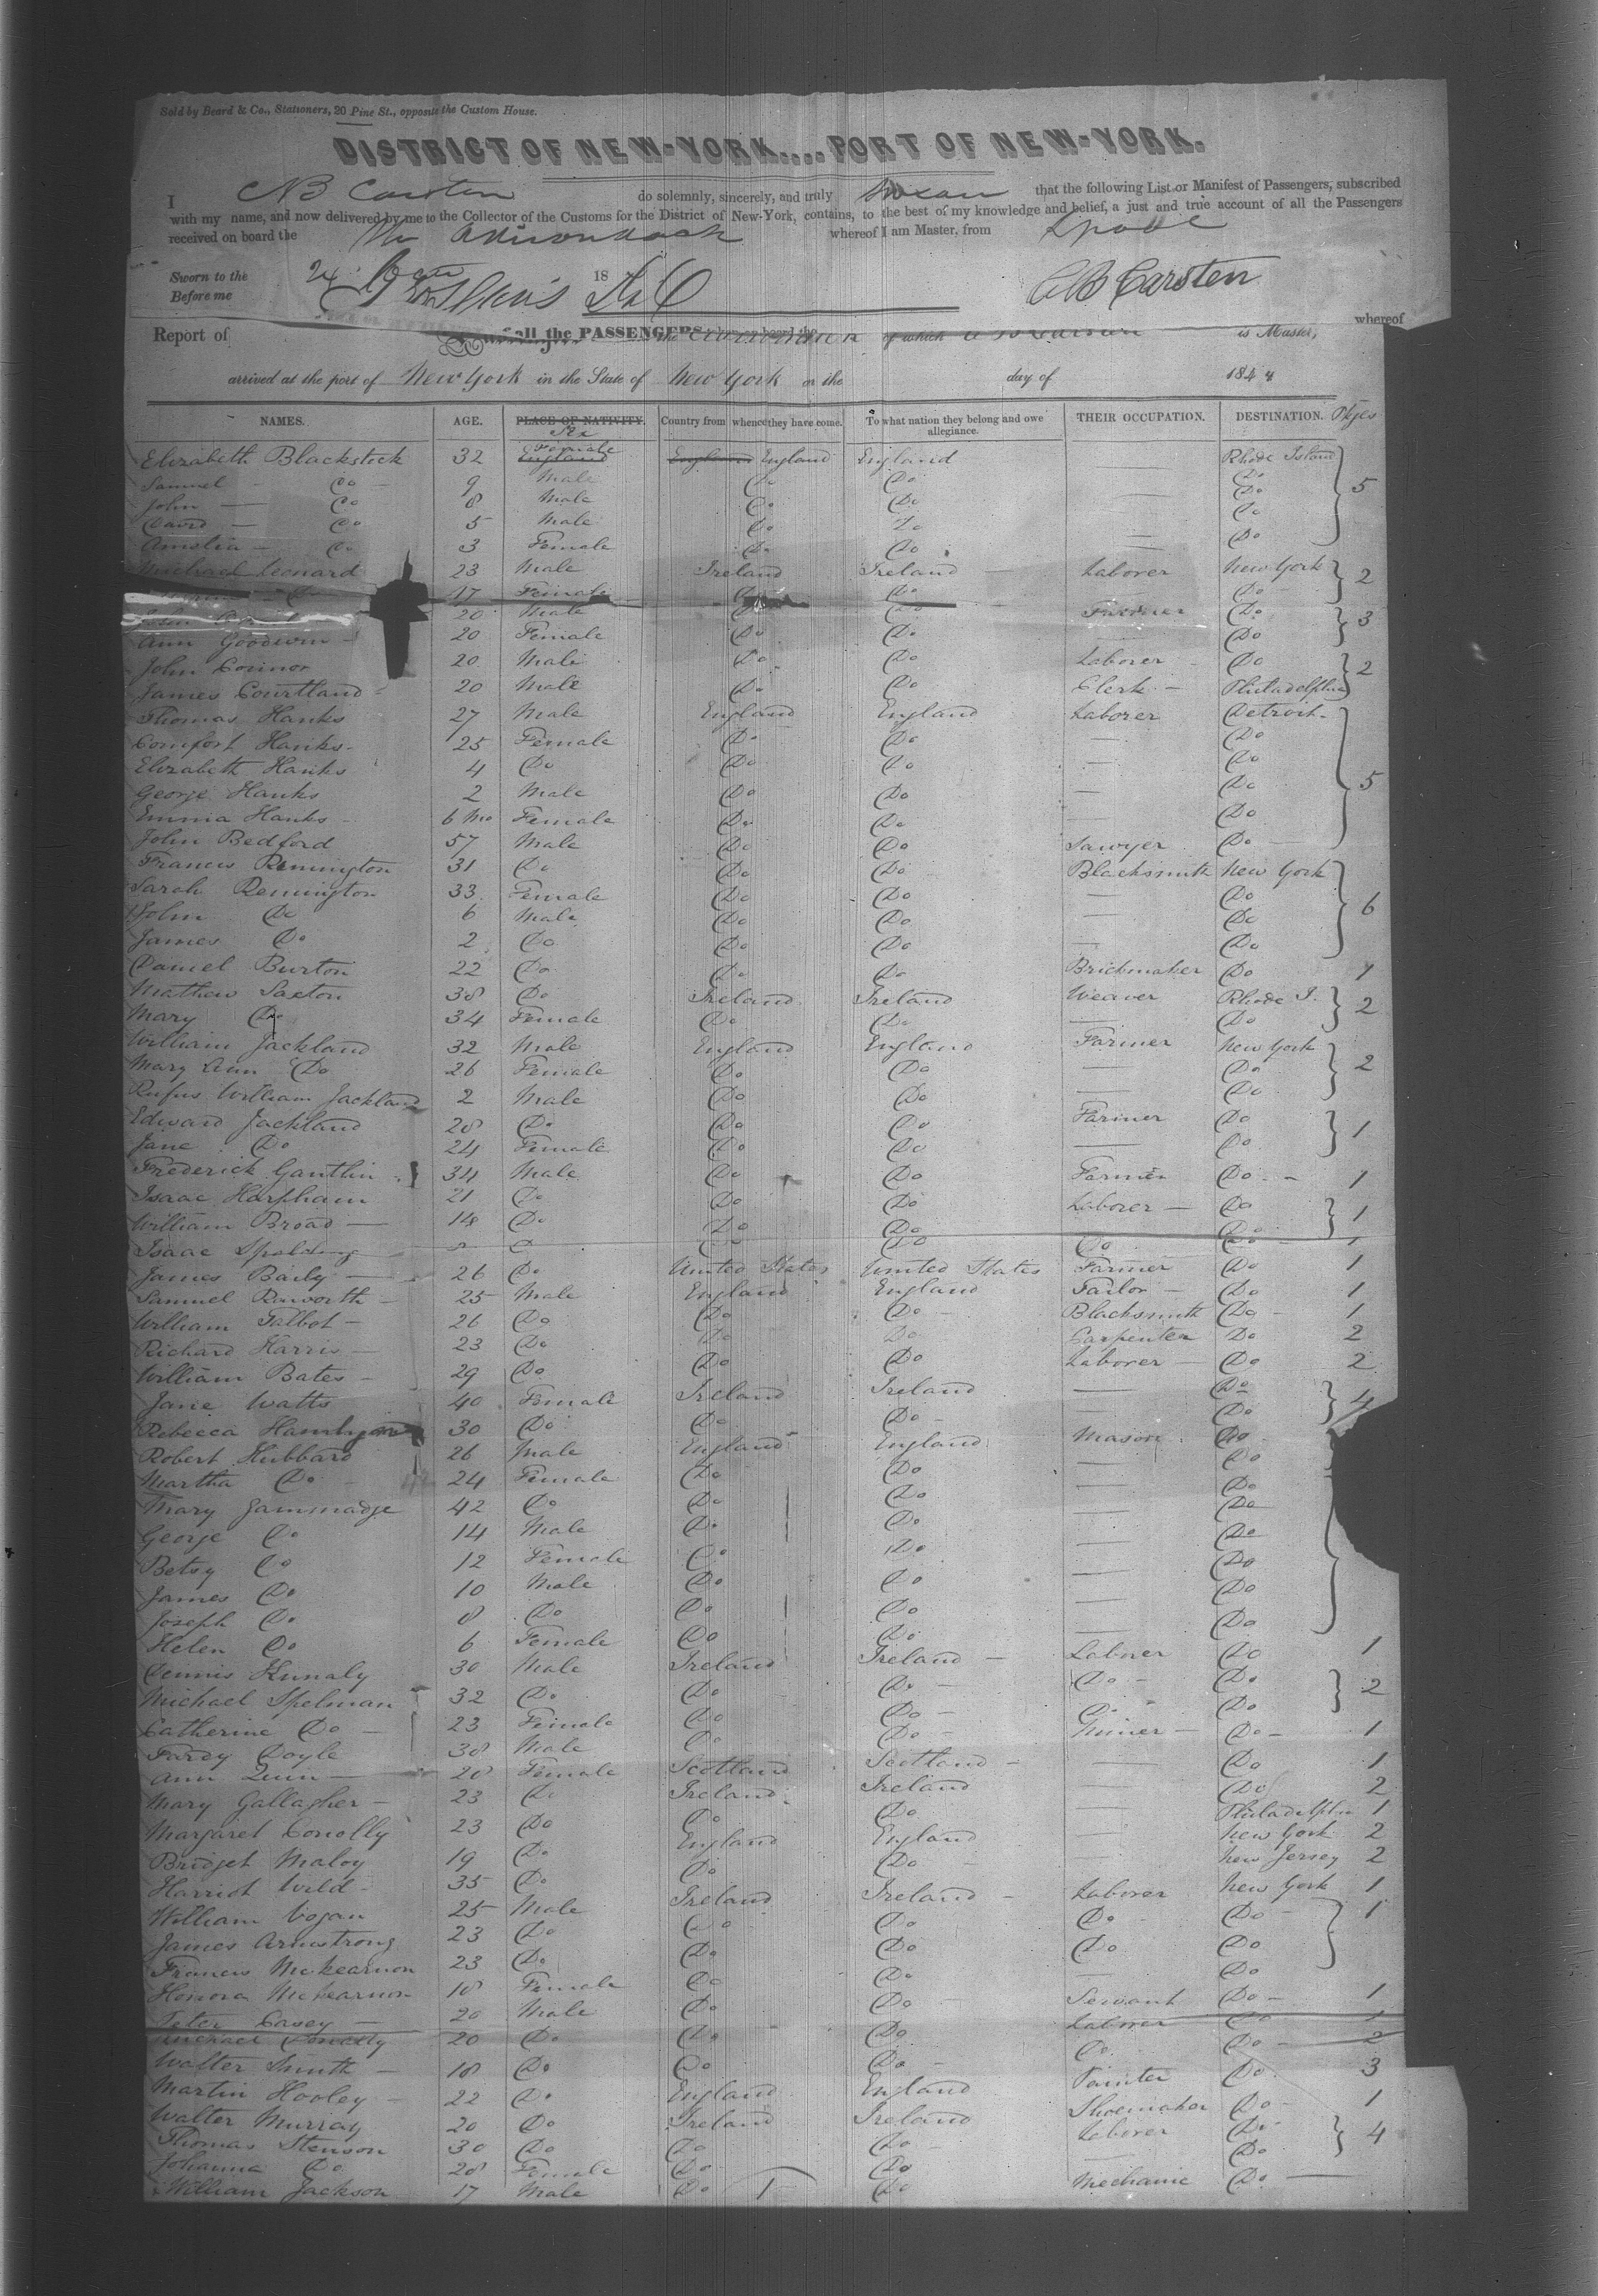 Sold by Beard & Co., Stationers, 20 Pine St., opposite the Custom House.
DISTRICT OF NEW-YORK....PORT OF NEW-YORK.
I do solemnly, sincerely, and truly Swear that the following List or Manifest of Passengers, subscribed
with my name, and now delivered by me to the Collector of the Customs for the District of New-York, contains, to the best of my knowledge and belief, a just and true account of all the Passengers
received on board the Ship Adirondack whereof I am Master, from Lpool
Sworn to the 18
Before me CB Carsten
whereof
Report of all the PASSENGERS of which is Master,
arrived at the port of New York in the State of New York on the day of 184
NAMES. AGE. PLACE OF NATIVITY. Sex Country from whence they have come. To what nation they belong and owe allegiance. THEIR OCCUPATION. DESTINATION. Pkges
Elizabeth Blackstock 32 Female England England Rhode Island
Samuel Do 9 Male Do Do Do 5
John Do 8 Male Do Do Do
David Do 5 Male Do Do Do
Amelia Do 3 Female Do Do Do
Michael Leonard 23 Male Ireland Ireland Laborer New York 2
17 Female Do Do Do
John 20 Male Farmer Do 3
Ann Goodwin 20 Female Do Do Do
John Connor 20 Male Do Do Laborer Do 2
James Courtland 20 Male Do Do Clerk Philadelphia
Thomas Hanks 27 Male England England Laborer Detroit
Comfort Hanks 25 Female Do Do Do
Elizabeth Hanks 4 Do Do Do Do
George Hanks 2 Male Do Do Do 5
Emma Hanks 6 Mo Female Do Do Do
John Bedford 57 Male Do Do Sawyer Do
Francis Remington 31 Do Do Do Blacksmith New York
Sarah Remington 33 Female Do Do Do
John Do 6 Male Do Do Do 6
James Do 2 Do Do Do Do
Daniel Burton 22 Do Do Do Brickmaker Do 1
Mathew Saxton 38 Do Ireland Ireland Weaver Rhode I. 2
Mary Do 34 Female Do Do Do
William Jackland 32 Male England England Farmer New York
Mary Ann Do 26 Female Do Do Do 2
Rufus William Jackland 2 Male Do Do Do
Edward Jackland 28 Do Do Do Farmer Do 1
Jane Do 24 Female Do Do Do
Frederick Gantlin 34 Male Do Do Farmer Do 1
Isaac Harpham 21 Do Do Do Laborer Do 1
William Broad 14 Do Do Do Do
Isaac Spalding Do Do Do
James Baily 26 Do United States United States Farmer Do 1
Samuel Roworth 25 Male England England Tailor Do 1
William Talbot 26 Do Do Do Blacksmith Do 1
Richard Harris 23 Do Do Do Carpenter Do 2
William Bates 29 Do Do Do Laborer Do 2
Jane Watts 40 Female Ireland Ireland Do 4
Rebecca 30 Do Do Do Do
Robert Hubbard 26 Male England England Mason Do
Martha Do 24 Female Do Do Do
Mary Gammadge 42 Do Do Do Do
George Do 14 Male Do Do Do
Betsy Do 12 Female Do Do Do
James Do 10 Male Do Do Do
Joseph Do 8 Do Do Do Do
Helen Do 6 Female Do Do Do
Dennis 30 Male Ireland Ireland Laborer Do 1
Michael Spelman 32 Do Do Do Do Do 2
Catherine Do 23 Female Do Do Do Do
Fardy Doyle 38 Male Do Do Miner Do 1
Ann Quin 28 Female Scotland Scotland Do 1
Mary Gallagher 23 Do Ireland Ireland Do 2
Margaret Conolly 23 Do Do Do Philadelphia 1
Bridget Maloy 19 Do England England New York 2
Harriot Wild 35 Do Do Do New Jersey 2
William Cogan 25 Male Ireland Ireland Laborer New York 1
James Armstrong 23 Do Do Do Do Do 1
Francis McKearnon 23 Do Do Do Do Do
Honora McKearnon 18 Female Do Do Do
Peter Casey 20 Male Do Do Servant Do 1
Michael 20 Do Do Do Laborer Do 1
Walter Smith 18 Do Do Do Do Do 2
Martin Hooley 22 Do England England Painter Do 3
Walter Murray 20 Do Ireland Ireland Shoemaker Do 1
Thomas Stenson 30 Do Do Do Laborer Do 4
Johanna Do 28 Female Do Do Do
William Jackson 17 Male Do Do Mechanic Do